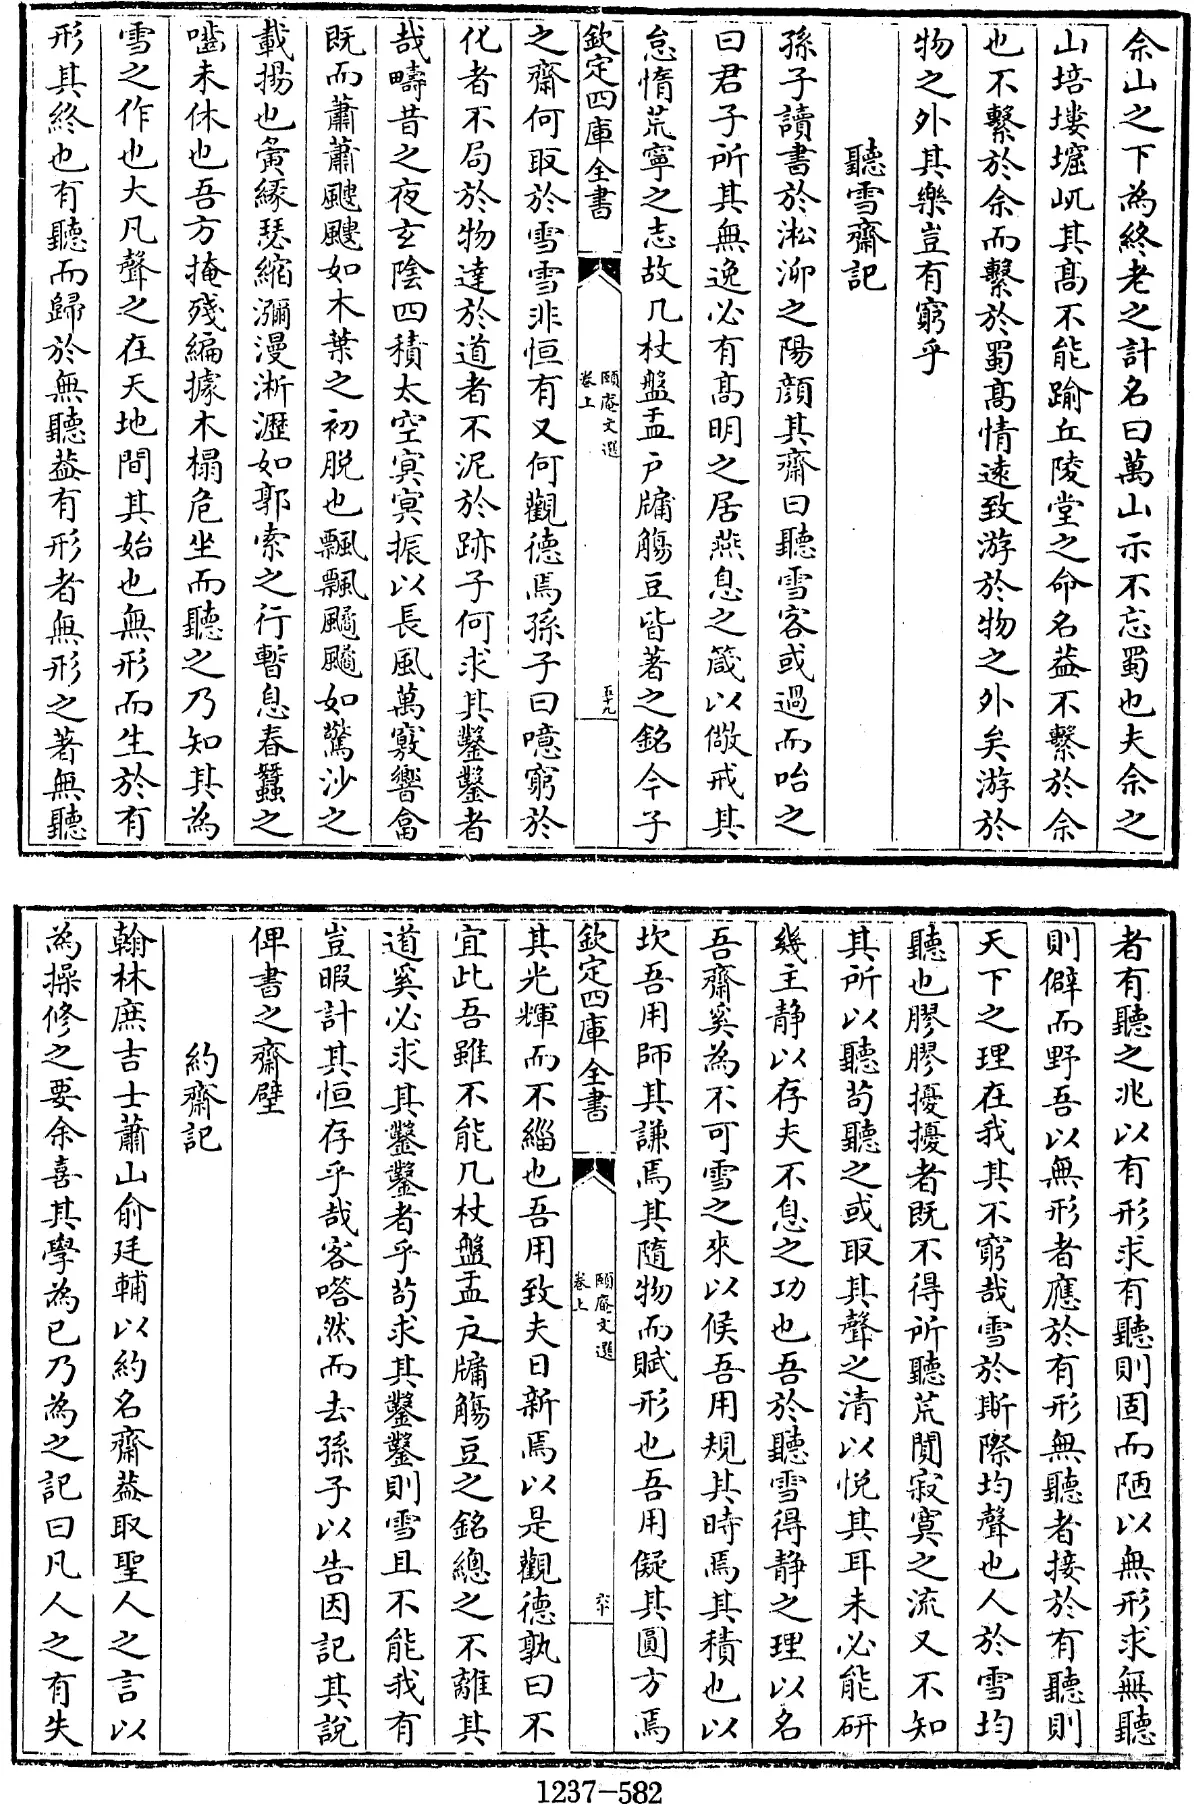 佘山之下為終老之計名曰萬山示不忘蜀也夫佘之
山培塿𡼏屼其髙不能踰丘陵堂之命名葢不繫於佘
也不繫於佘而繫於蜀髙情逺致游於物之外矣游於
物之外其樂豈有窮乎
聽雪齋記
孫子讀書於淞泖之陽顔其齋曰聽雪客或過而咍之
曰君子所其無逸必有髙明之居燕息之箴以儆戒其
怠惰荒寧之志故几杖盤盂户牖觴豆皆著之銘今子
欽定四庫全書
頤庵文選
卷上
五十九
之齋何取於雪雪非恒有又何觀徳焉孫子曰噫窮於
化者不局於物達於道者不泥於跡子何求其鑿鑿者
哉疇昔之夜玄陰四積太空㝠㝠振以長風萬竅響畣
既而蕭蕭颼颼如木葉之初脱也飄飄颺颺如驚沙之
載揚也夤緣瑟縮瀰漫淅瀝如郭索之行暫息春蠶之
囓未休也吾方掩殘編據木榻危坐而聽之乃知其為
雪之作也大凡聲之在天地間其始也無形而生於有
形其終也有聽而歸於無聽葢有形者無形之著無聽
者有聽之兆以有形求有聽則固而陋以無形求無聽
則僻而野吾以無形者應於有形無聽者接於有聽則
天下之理在我其不窮哉雪於斯際均聲也人於雪均
聽也膠膠擾擾者既不得所聽荒閒寂寞之流又不知
其所以聽茍聽之或取其聲之清以悦其耳未必能研
幾主静以存夫不息之功也吾於聽雪得静之理以名
吾齋奚為不可雪之來以候吾用規其時焉其積也以
坎吾用師其謙焉其隨物而賦形也吾用儗其圓方焉
欽定四庫全書
頤庵文選
卷上
六十
其光輝而不緇也吾用致夫日新焉以是觀徳孰曰不
宜此吾雖不能几杖盤盂户牖觴豆之銘總之不離其
道奚必求其鑿鑿者乎茍求其鑿鑿則雪且不能我有
豈暇計其恒存乎哉客嗒然而去孫子以告因記其説
俾書之齋壁
約齋記
翰林庶吉士蕭山俞廷輔以約名齋葢取聖人之言以
為操修之要余喜其學為已乃為之記曰凡人之有失
1237-582